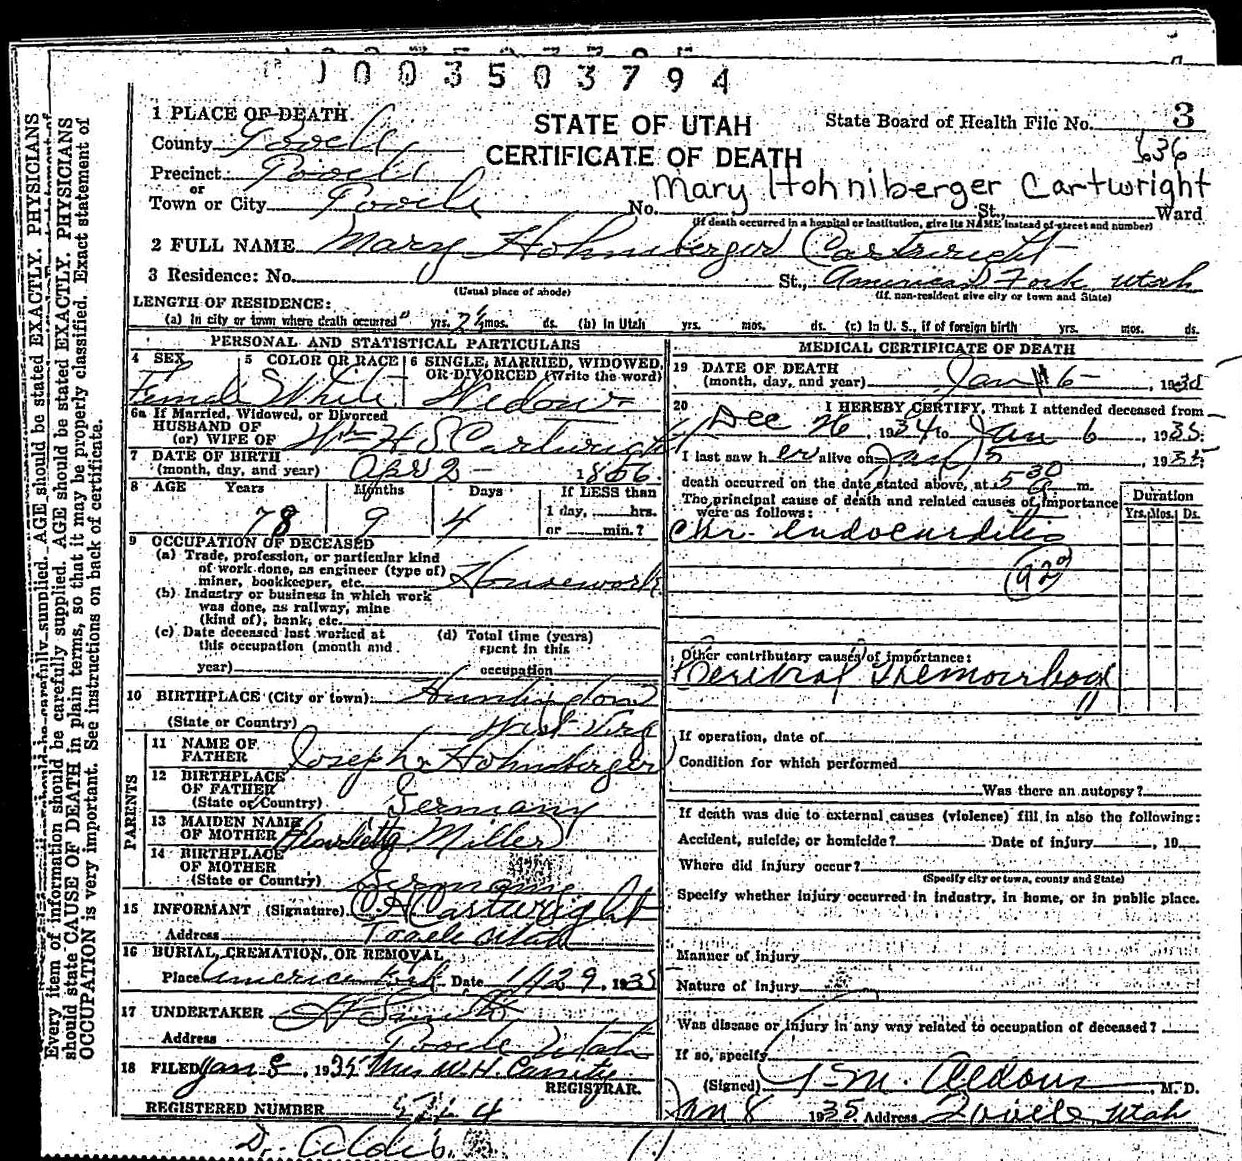 0003503794
1 PLACE OF DEATH.
STATE OF UTAH
State Board of Health File No. 3
County Tooele
CERTIFICATE OF DEATH
636
Precinct Tooele
or
Mary Hohniberger Cartwright
Town or City Tooele No. St., Ward
(If death occurred in a hospital or institution, give its NAME instead of street and number)
2 FULL NAME Mary Hohnberger Cartwright
3 Residence: No. St., American Fork Utah
(Usual place of abode) (If non-resident give city or town and State)
LENGTH OF RESIDENCE:
(a) In city or town where death occurred yrs. mos. ds. (b) In Utah yrs. mos. ds. (c) In U. S., if of foreign birth yrs. mos. ds.
PERSONAL AND STATISTICAL PARTICULARS
4 SEX 5 COLOR OR RACE 6 SINGLE, MARRIED, WIDOWED, OR DIVORCED (Write the word)
Female White Widow
6a If Married, Widowed, or Divorced
HUSBAND OF
(or) WIFE OF Wm H S Cartwright
7 DATE OF BIRTH
(month, day, and year) Apr 2 - 1856
8 AGE Years Months Days If LESS than
1 day, hrs.
78 9 4 or min.?
9 OCCUPATION OF DECEASED
(a) Trade, profession, or particular kind
of work done, as engineer (type of)
miner, bookkeeper, etc. Housework
(b) Industry or business in which work
was done, as railway, mine
(kind of), bank, etc.
(c) Date deceased last worked at (d) Total time (years)
this occupation (month and spent in this
year) occupation
10 BIRTHPLACE (City or town) Huntingdon
(State or Country) West Virg
PARENTS
11 NAME OF
FATHER Joseph Hohnberger
12 BIRTHPLACE
OF FATHER
(State or Country) Germany
13 MAIDEN NAME
OF MOTHER Miller
14 BIRTHPLACE
OF MOTHER
(State or Country) Germany
15 INFORMANT (Signature) Cartwright
Address Tooele Utah
16 BURIAL, CREMATION, OR REMOVAL
Place American Fork Date 1/ 9, 1935
17 UNDERTAKER Smith
Address Tooele Utah
18 FILED Jan 8, 1935 Mrs W. H.
REGISTRAR.
REGISTERED NUMBER
MEDICAL CERTIFICATE OF DEATH
19 DATE OF DEATH
(month, day, and year) Jan 6 - , 1935
20 I HEREBY CERTIFY, That I attended deceased from
Dec 26, 1934 to Jan 6, 1935.
I last saw her alive on Jan 5, 1935
death occurred on the date stated above, at 5 30 a m.
The principal cause of death and related causes of importance
were as follows:
Duration
Yrs. Mos. Ds.
Chr. endocarditis
Other contributory causes of importance:
Cerebral Hemorrhage
If operation, date of
Condition for which performed
Was there an autopsy?
If death was due to external causes (violence) fill in also the following:
Accident, suicide, or homicide? Date of injury , 19
Where did injury occur?
(Specify city or town, county and State)
Specify whether injury occurred in industry, in home, or in public place.
Manner of Injury
Nature of injury
Was disease or injury in any way related to occupation of deceased?
If so, specify
(Signed) M. Aldous M. D.
Jan 8 1935 Address Tooele Utah
Every item of information should be carefully supplied. AGE should be stated EXACTLY. PHYSICIANS
should state CAUSE OF DEATH in plain terms, so that it may be properly classified. Exact statement of
OCCUPATION is very important. See instructions on back of certificate.